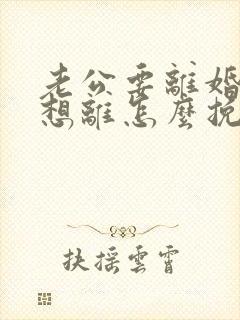 老公要離婚
想離怎麼挽
扶搖雲霄